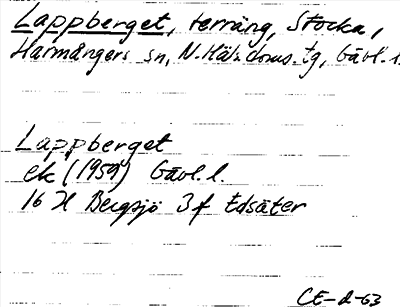 Lappberget, terräng, Stocka,
Harmångers sn, N. Häls. doms. tg, Gävl. l.
Lappberget
ek (1959) Gävl. l.
16 H Bergsjö 3 f Edsäter
CE-d-63